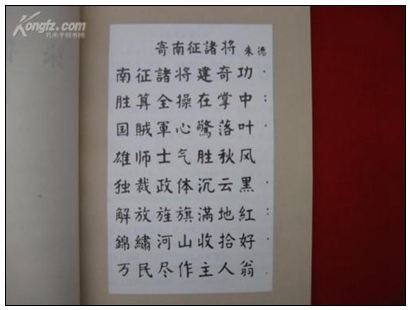 Kongfz.com
孔夫子旧书网
寄南征諸將 朱德
南征諸將建奇功
胜算全操在掌中
国賊軍心驚落叶
雄师士气胜秋风
独裁政体沉云黑
解放旌旗滿地紅
錦繡河山收拾好
万民尽作主人翁